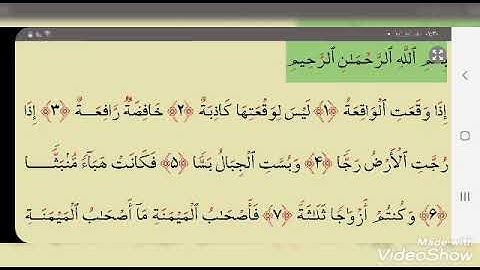 بِسْمِ ٱللَّهِ ٱلرَّحْمَـٰنِ ٱلرَّحِيمِ
إِذَا وَقَعَتِ ٱلْوَاقِعَةُ ﴿١﴾ لَيْسَ لِوَقْعَتِهَا كَاذِبَةٌ ﴿٢﴾ خَافِضَةٌ رَّافِعَةٌ ﴿٣﴾ إِذَا
رُجَّتِ ٱلْأَرْضُ رَجًّا ﴿٤﴾ وَبُسَّتِ ٱلْجِبَالُ بَسًّا ﴿٥﴾ فَكَانَتْ هَبَآءً مُّنۢبَثًّا
﴿٦﴾ وَكُنتُمْ أَزْوَٰجًا ثَلَـٰثَةً ﴿٧﴾ فَأَصْحَـٰبُ ٱلْمَيْمَنَةِ مَآ أَصْحَـٰبُ ٱلْمَيْمَنَةِ
Made with
VideoShow